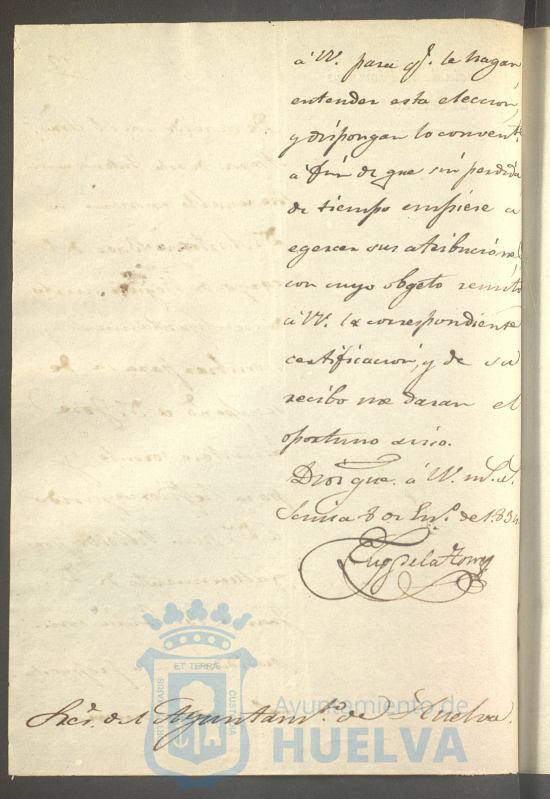 á VV. para qe. le hagan
entender esta eleccion,
y dispongan lo convente.
á fin de que sin perdida
de tiempo empiese a
egercer sus atribuciones,
con cuyo obgeto remito
á VV. la correspondiente
certificacion, y de su
recibo me daran el
oportuno aviso.
Dios gue. á VV. ms. as.
Sevilla 8 de En.o de 1834.
Eug. de la Torre
Sres. del Ayuntam.to de Huelva.
PORTUS MARIS
ET TERRÆ
CUSTODIA
Ayuntamiento de
HUELVA